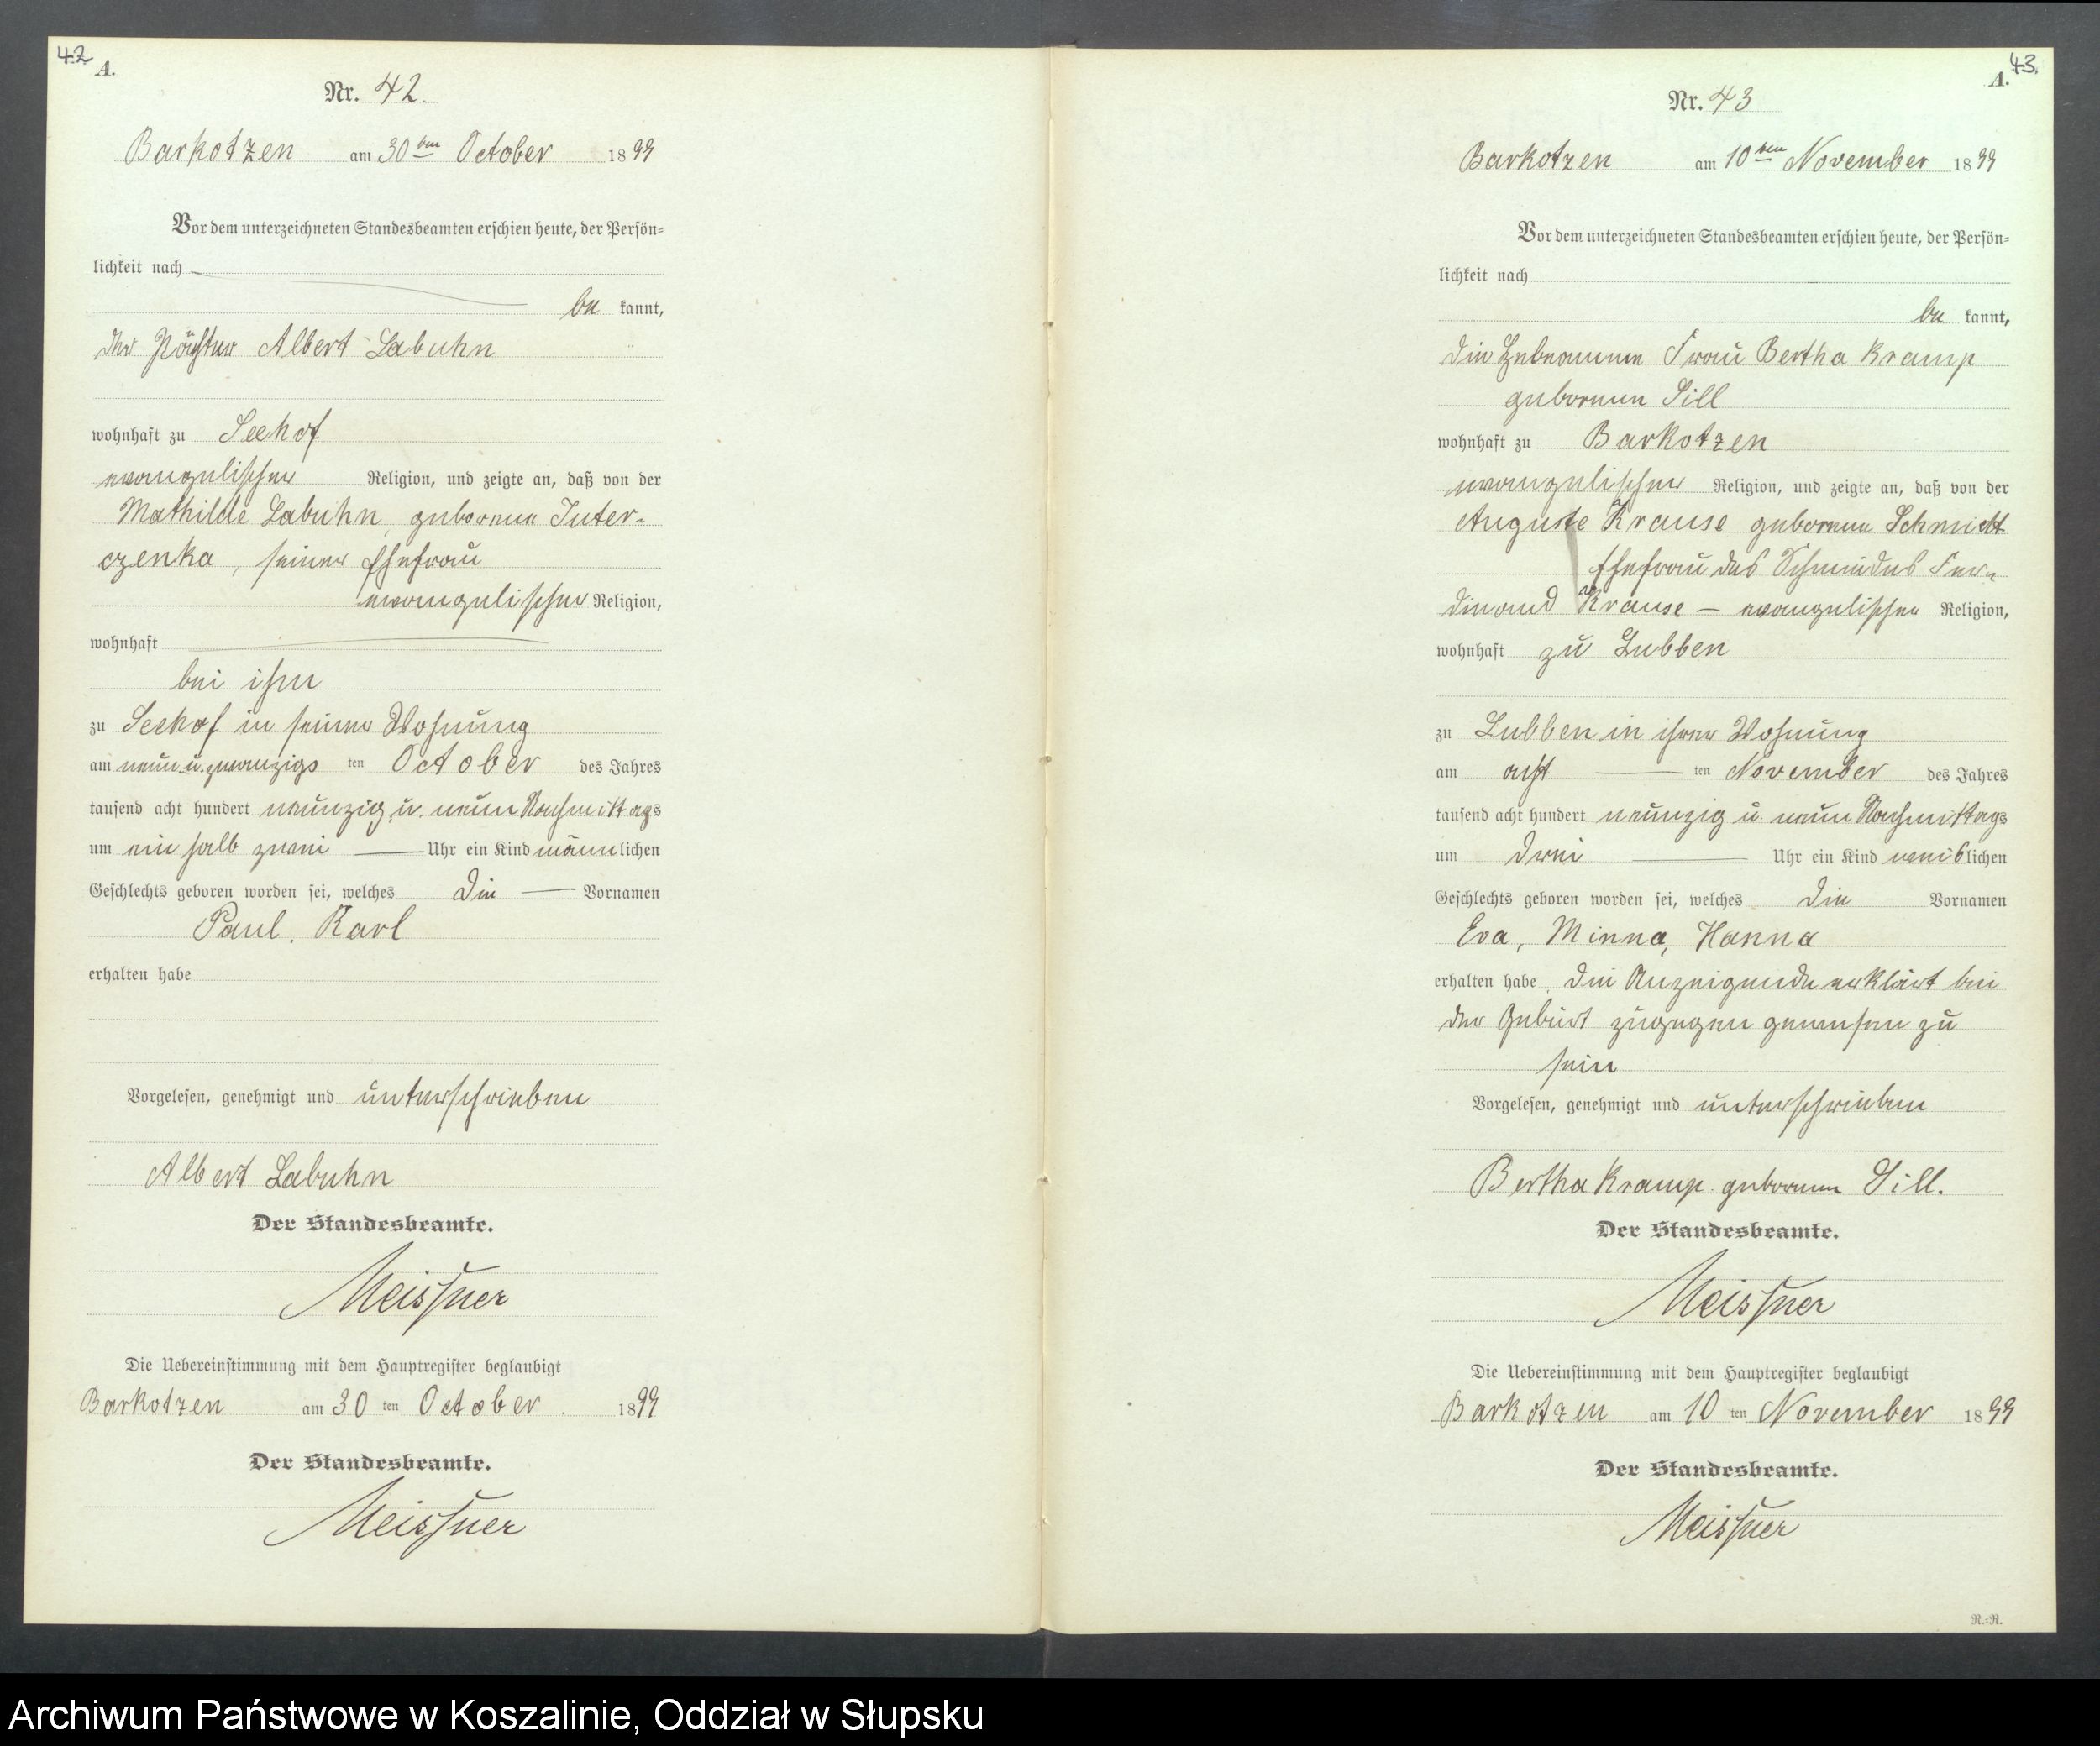 42
A.
Nr. 42.
Barkotzen am 30ten October 1899
Vor dem unterzeichneten Standesbeamten erschien heute, der Persön=
lichkeit nach
be kannt,
der Albert Labuhn
wohnhaft zu Seehof
evangelischer Religion, und zeigte an, daß von der
Mathilde Labuhn, geborenen Juter-
czenka, seiner Ehefrau
evangelischer Religion,
wohnhaft
bei ihm
zu Seehof in seiner Wohnung
am neun u. zwanzigs ten October des Jahres
tausend acht hundert neunzig u. neun Nachmittags
um ein halb zwei Uhr ein Kind männlichen
Geschlechts geboren worden sei, welches die Vornamen
Paul, Karl
erhalten habe
Vorgelesen, genehmigt und unterschrieben
Albert Labuhn
Der Standesbeamte.
Meissner
Die Uebereinstimmung mit dem Hauptregister beglaubigt
Barkotzen am 30 ten October. 1899
Der Standesbeamte.
Meissner
43.
A.
Nr. 43
Barkotzen am 10ten November 1899
Vor dem unterzeichneten Standesbeamten erschien heute, der Persön=
lichkeit nach
be kannt,
die Hebeamme Frau Bertha Kramp
geborene Sill
wohnhaft zu Barkotzen
evangelischer Religion, und zeigte an, daß von der
Auguste Krause geborene Schmidt
Ehefrau des Schmiedes Fer-
dinand Krause — evangelischer Religion,
wohnhaft zu Lubben
zu Lubben in ihrer Wohnung
am acht ten November des Jahres
tausend acht hundert neunzig u. neun Nachmittags
um drei Uhr ein Kind weiblichen
Geschlechts geboren worden sei, welches die Vornamen
Eva, Minna, Hanna
erhalten habe. Die Anzeigende erklärt bei
der Geburt zugegen gewesen zu
sein
Vorgelesen, genehmigt und unterschrieben
Bertha Kramp geborene Sill.
Der Standesbeamte.
Meissner
Die Uebereinstimmung mit dem Hauptregister beglaubigt
Barkotzen am 10 ten November 1899
Der Standesbeamte.
Meissner
R.=R.
Archiwum Państwowe w Koszalinie, Oddział w Słupsku